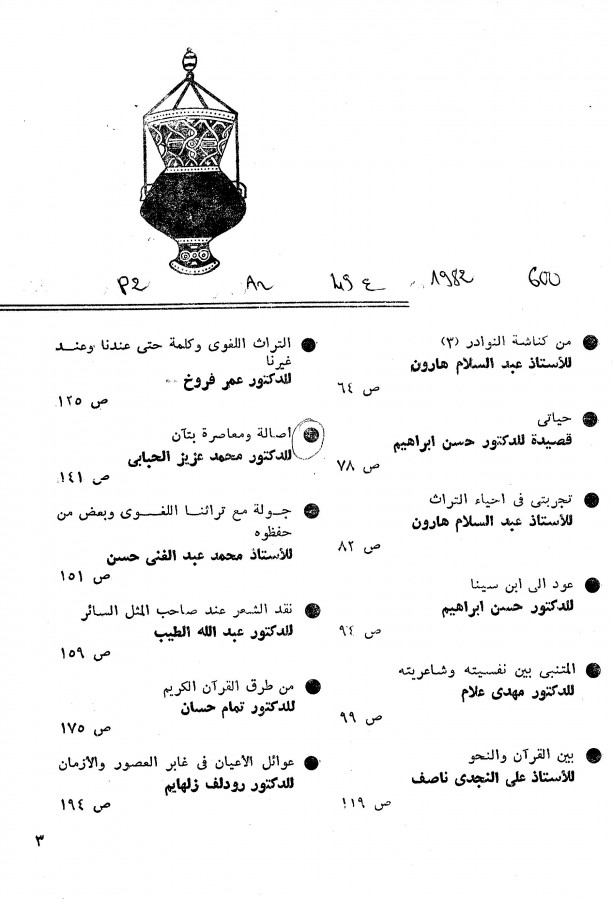 P2 An 49 ع 1982 600
● من كناشة النوادر (٣)
للأستاذ عبد السلام هارون
ص ٦٤
● حياتى
قصيدة للدكتور حسن ابراهيم
ص ٧٨
● تجربتى فى احياء التراث
للأستاذ عبد السلام هارون
ص ٨٢
● عود الى ابن سينا
للدكتور حسن ابراهيم
ص ٩٤
● المتنبى بين نفسيته وشاعريته
للدكتور مهدى علام
ص ٩٩
● بين القرآن والنحو
للأستاذ على النجدى ناصف
ص ١١٩
● التراث اللغوى وكلمة حتى عندنا وعند
غيرنا
للدكتور عمر فروخ
ص ١٢٥
● اصالة ومعاصرة بتآن
للدكتور محمد عزيز الحبابى
ص ١٤١
● جولة مع تراثنا اللغوى وبعض من
حفظوه
للأستاذ محمد عبد الغنى حسن
ص ١٥١
● نقد الشعر عند صاحب المثل السائر
للدكتور عبد الله الطيب
ص ١٥٩
● من طرق القرآن الكريم
للدكتور تمام حسان
ص ١٧٥
● عوائل الأعيان فى غابر العصور والأزمان
للدكتور رودلف زلهايم
ص ١٩٤
٣